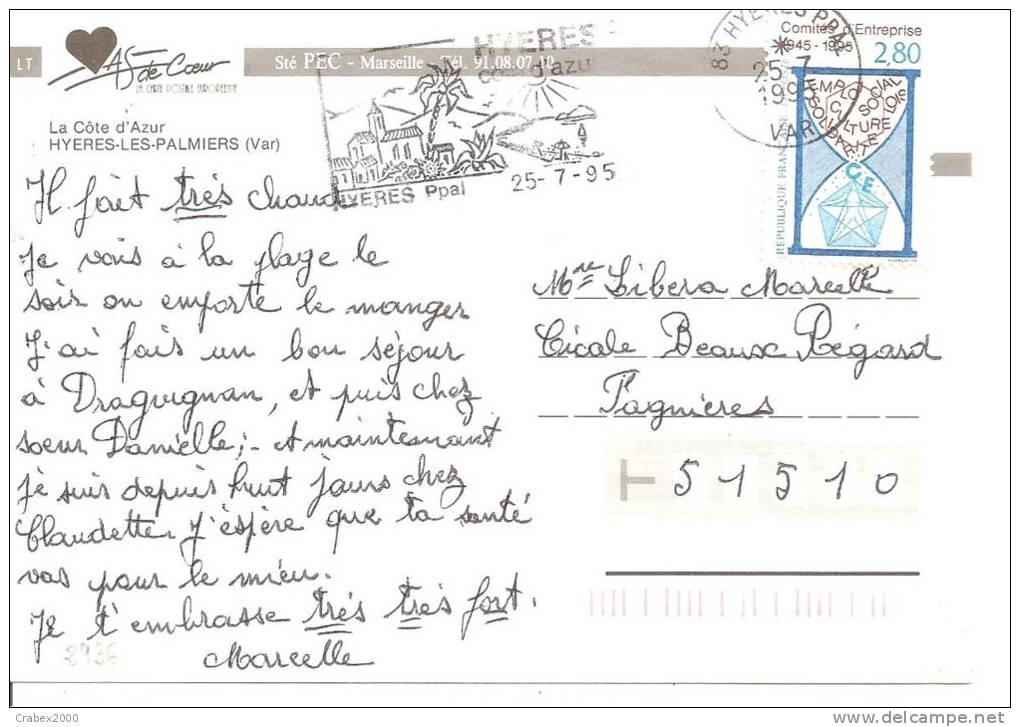 LT
AS de Cœur
LA CARTE POSTALE EUROPÉENNE
Sté PEC - Marseille - Tél. 91.08.07.10
La Côte d'Azur
HYERES-LES-PALMIERS (Var)
HYERES
côte d'azur
HYERES Ppal 25-7-95
83 HYERES PPAL
25-7
199
VAR
Comités d'Entreprise
1945-1995 2,80
EMPLOI SOCIAL
CULTURE LOISIRS
SOLIDARITÉ
CE
Il fait très chaud
Je vais à la plage le
soir on emporte le manger
J'ai fais un bon séjour
à Draguignan, et puis chez
soeur Danielle;- A maintenant
je suis depuis huit jours chez
Claudette J'éspère que ta santé
vas pour le mieu.
Je t'embrasse très très fort.
Marcelle
2936
Mme Libera Marcelle
Cicale Beaux Régard
Fagnières
51510
Crabex2000